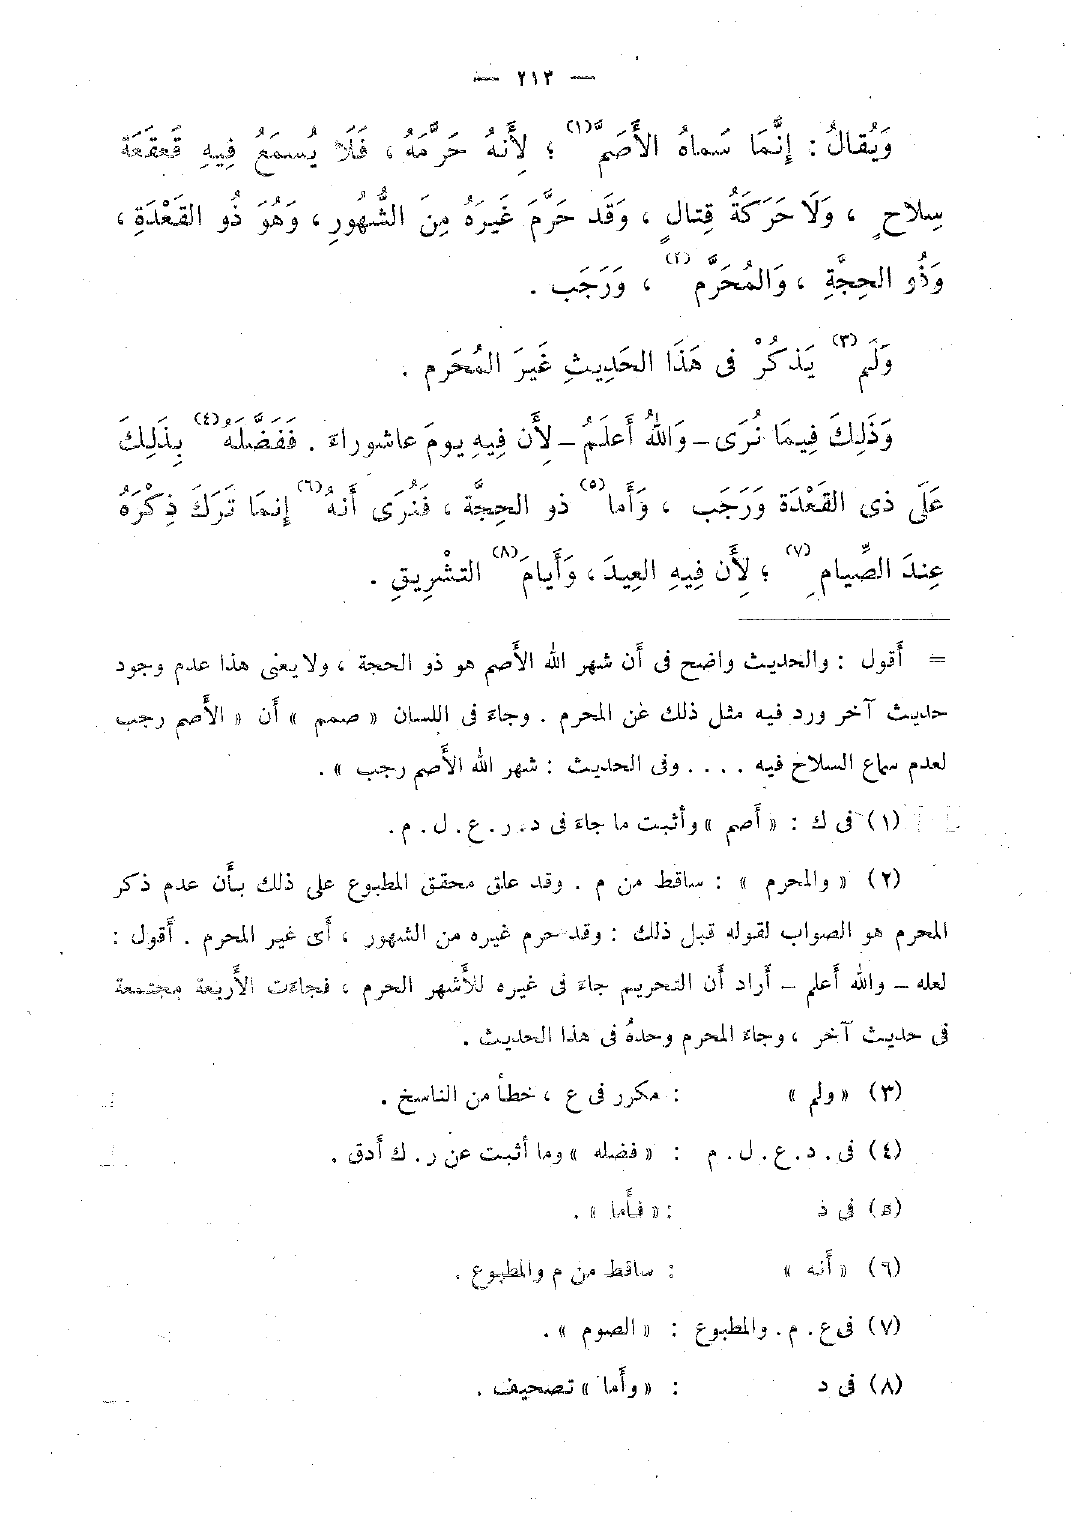 — ٢١٣ —
وَيُقالُ : إِنَّمَا سَماهُ الأَصَمَّ (١) ؛ لِأَنهُ حَرَّمَهُ ، فَلَا يُسمَعُ فِيهِ قَعقَعَة
سِلاحٍ ، وَلَا حَرَكَةُ قِتالٍ ، وَقَد حَرَّمَ غَيرَهُ مِنَ الشُّهُورِ ، وَهُوَ ذُو القَعْدَةِ ،
وَذُو الحِجَّةِ ، وَالمُحَرَّم (٢) ، وَرَجَب .
وَلَم (٣) يَذكُرْ فى هَذَا الحَدِيثِ غَيرَ المُحَرم .
وَذَلِكَ فِيمَا نُرَى – وَاللهُ أَعلَمُ – لِأَن فِيهِ يومَ عاشوراءَ . فَفَضَّلَهُ (٤) بِذَلِكَ
عَلَى ذى القَعْدَة وَرَجَب ، وَأَما (٥) ذو الحِجَّة ، فَنُرَى أَنهُ (٦) إِنمَا تَرَكَ ذِكْرَهُ
عِندَ الصِّيامِ (٧) ؛ لِأَن فِيهِ العِيدَ ، وَأَيامَ (٨) التشْرِيقِ .
= أَقول : والحديث واضح فى أَن شهر الله الأَصم هو ذو الحجة ، ولا يعنى هذا عدم وجود
حديث آخر ورد فيه مثل ذلك عن المحرم . وجاءَ فى اللسان « صمم » أَن « الأَصم رجب
لعدم سماع السلاح فيه .... وفى الحديث : شهر الله الأَصم رجب » .
(١) فى ك : « أَصم » وأثبت ما جاءَ فى د . ر . ع . ل . م .
(٢) « والمحرم » : ساقط من م . وقد علق محقق المطبوع على ذلك بأَن عدم ذكر
المحرم هو الصواب لقوله قبل ذلك : وقد حرم غيره من الشهور ، أَى غير المحرم . أَقول :
لعله – والله أَعلم – أَراد أَن التحريم جاءَ فى غيره للأَشهر الحرم ، فجاءَت الأَربعة مجتمعة
فى حديث آخر ، وجاءَ المحرم وحدهُ فى هذا الحديث .
(٣) « ولم » : مكرر فى ع ، خطأ من الناسخ .
(٤) فى . د . ع . ل . م : « فضله » وما أثبت عن ر . ك أَدق .
(٥) فى د : « فأَما » .
(٦) « أَنه » : ساقط من م والمطبوع .
(٧) فى ع . م . والمطبوع : « الصوم » .
(٨) فى د : « وأَما » تصحيف .